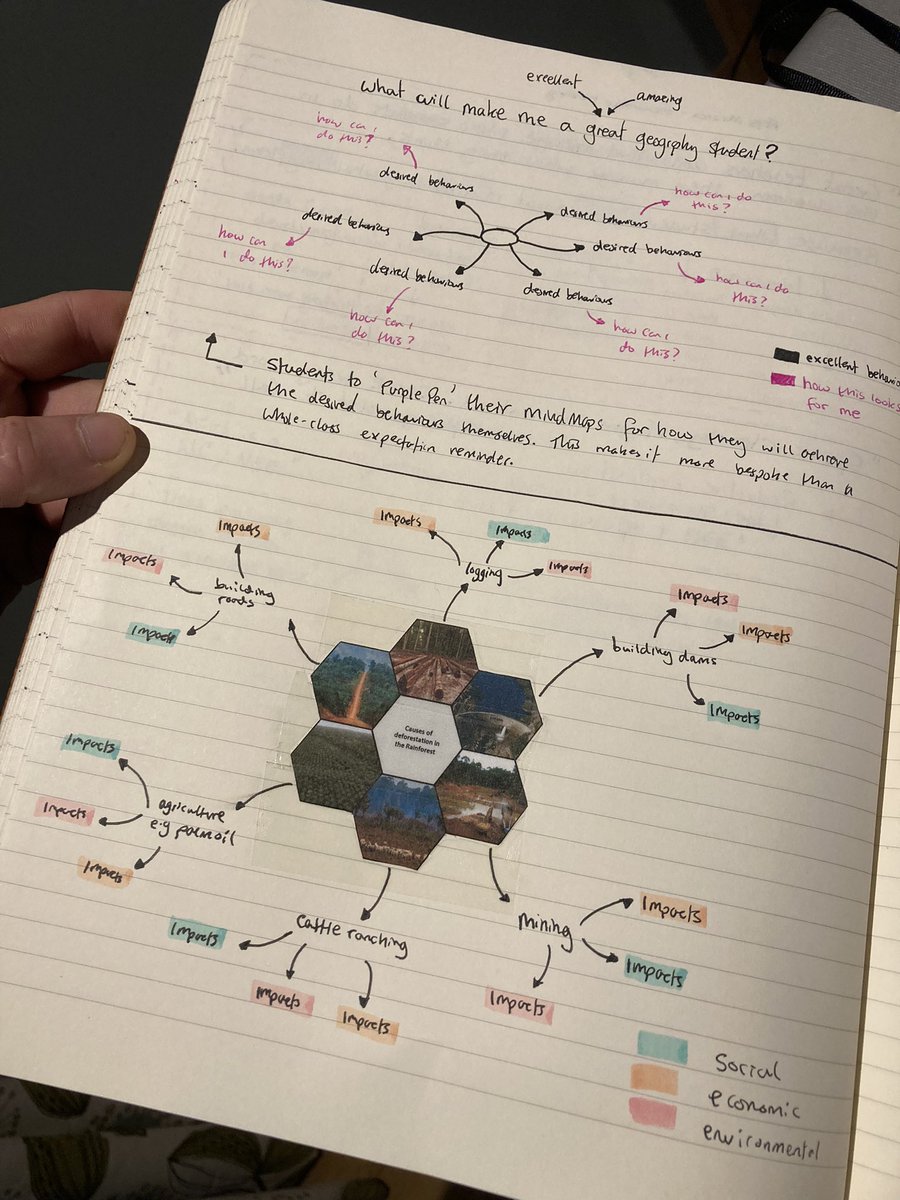 excellent
amazing
What will make me a great geogrphy student?
how can i
do this?
desired behaviours
how can i do
this?
desired behaviours
desired behaviours
how can
i do this?
desired behaviours
how can i do
this?
desired behaviours
desired behaviours
how can i
do this?
how can i
do this?
excellent behavio
how this looks
for me
Students to 'Purple Pen' their mind maps for how they will achieve
the desired behaviours themselves. This makes it more bespoke than a
whole-class expectation reminder.
Impacts
Impacts
building
roads
Impacts
Impacts
Impacts
logging
Impacts
Impacts
building dams
Impacts
Impacts
Causes of
deforestation in
the Rainforest
Impacts
Impacts
agriculture
e.g palm oil
Impacts
cattle ranching
Impacts
Impacts
Impacts
Mining
Impacts
Impacts
Impacts
Social
economic
environmental